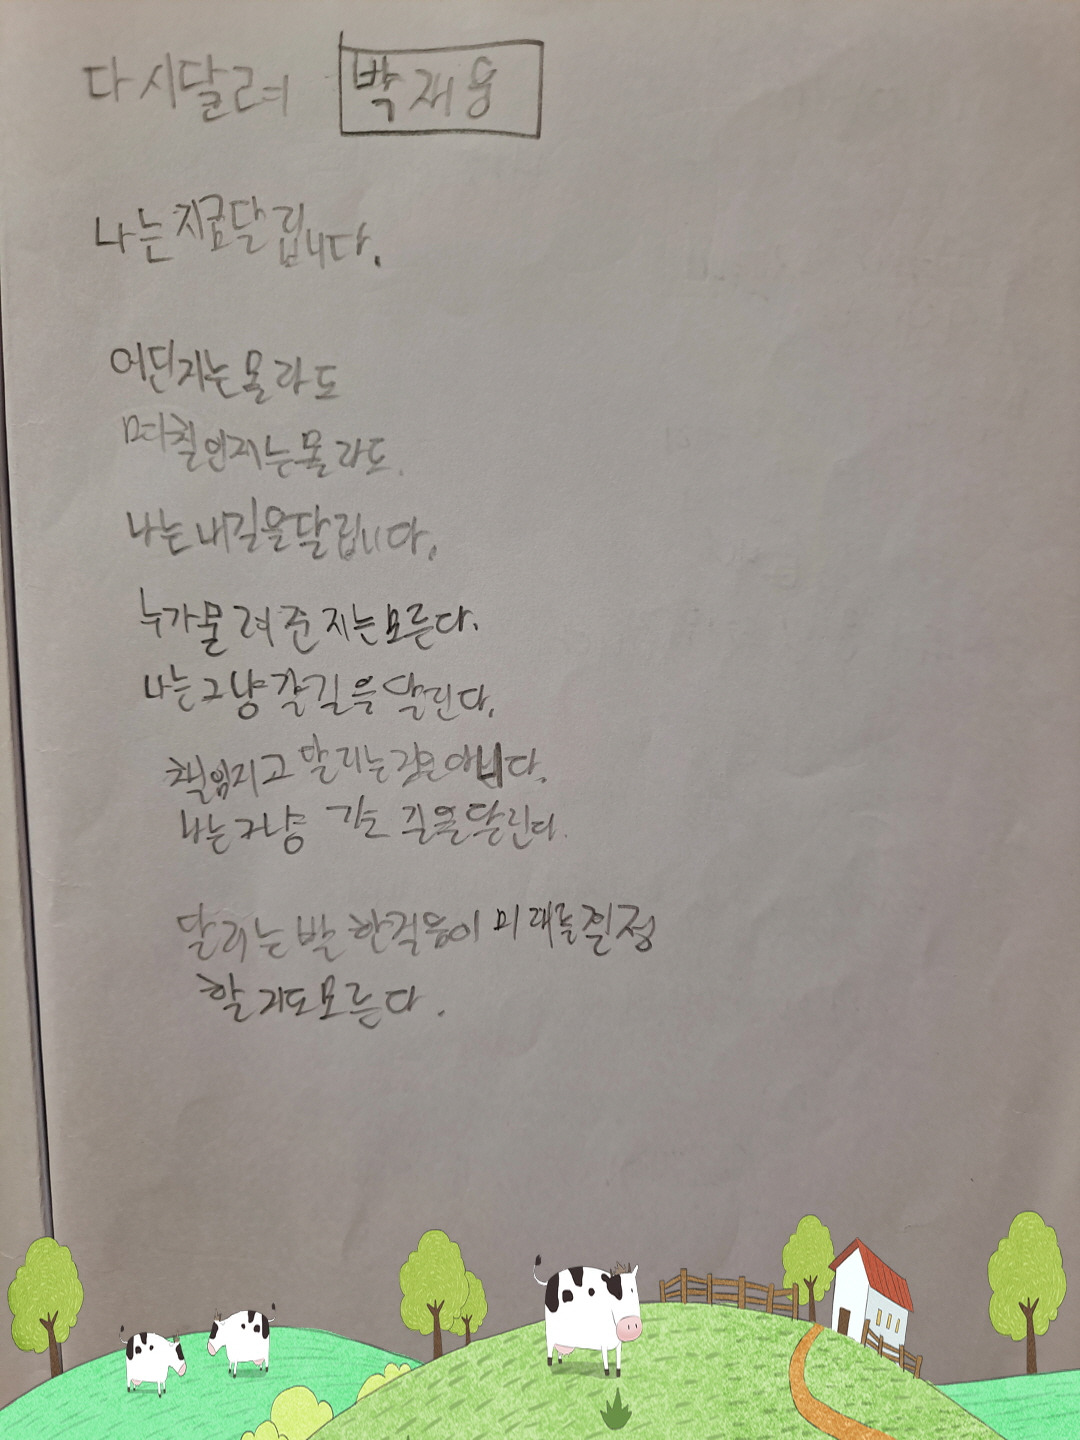 다시달려 박재용
나는 지금달립니다.
어딘지는몰라도
며칠인지는몰라도.
나는 내길을달립니다.
누가물려준지는모른다.
나는그냥갈길을 달린다.
책임지고 달리는것은아니다.
나는그냥 가는 길을달린다.
달리는발 한걸음이 미래를 결정
할지도모른다.